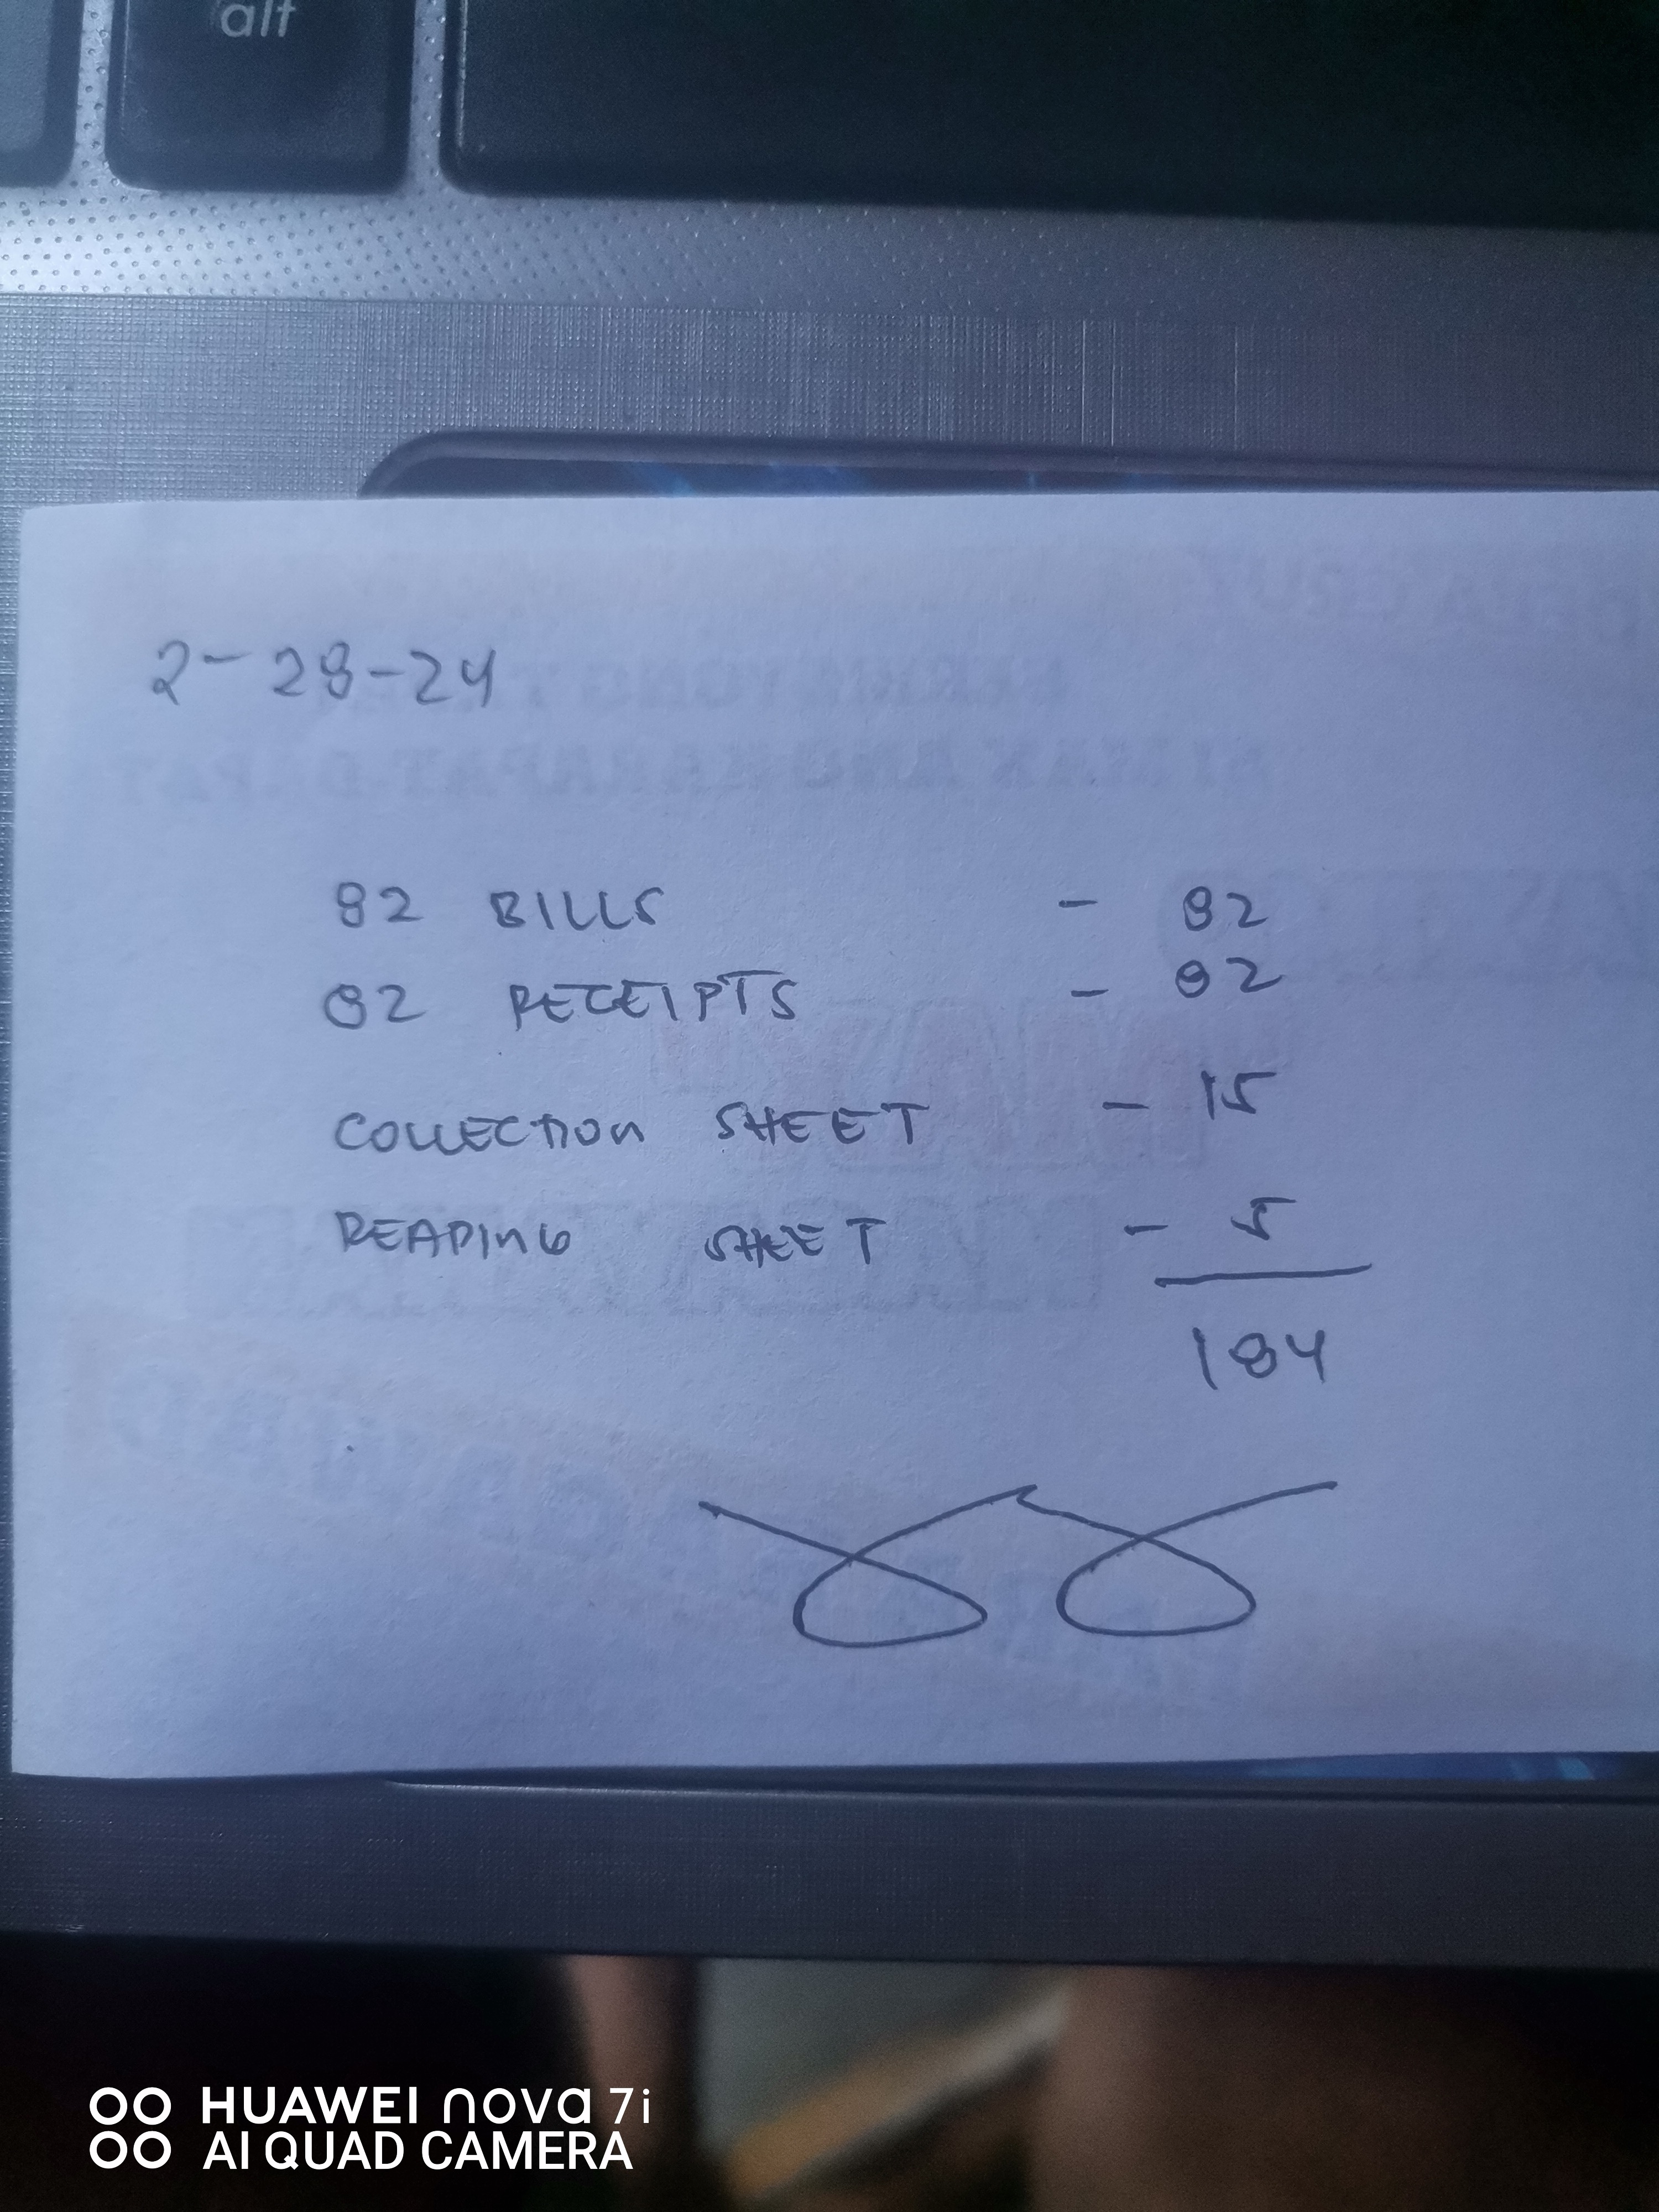 alt
2-28-24
82 BILLS - 82
82 RECEIPTS - 82
COLLECTION SHEET - 15
READING SHEET - 5
184
HUAWEI nova 7i
AI QUAD CAMERA